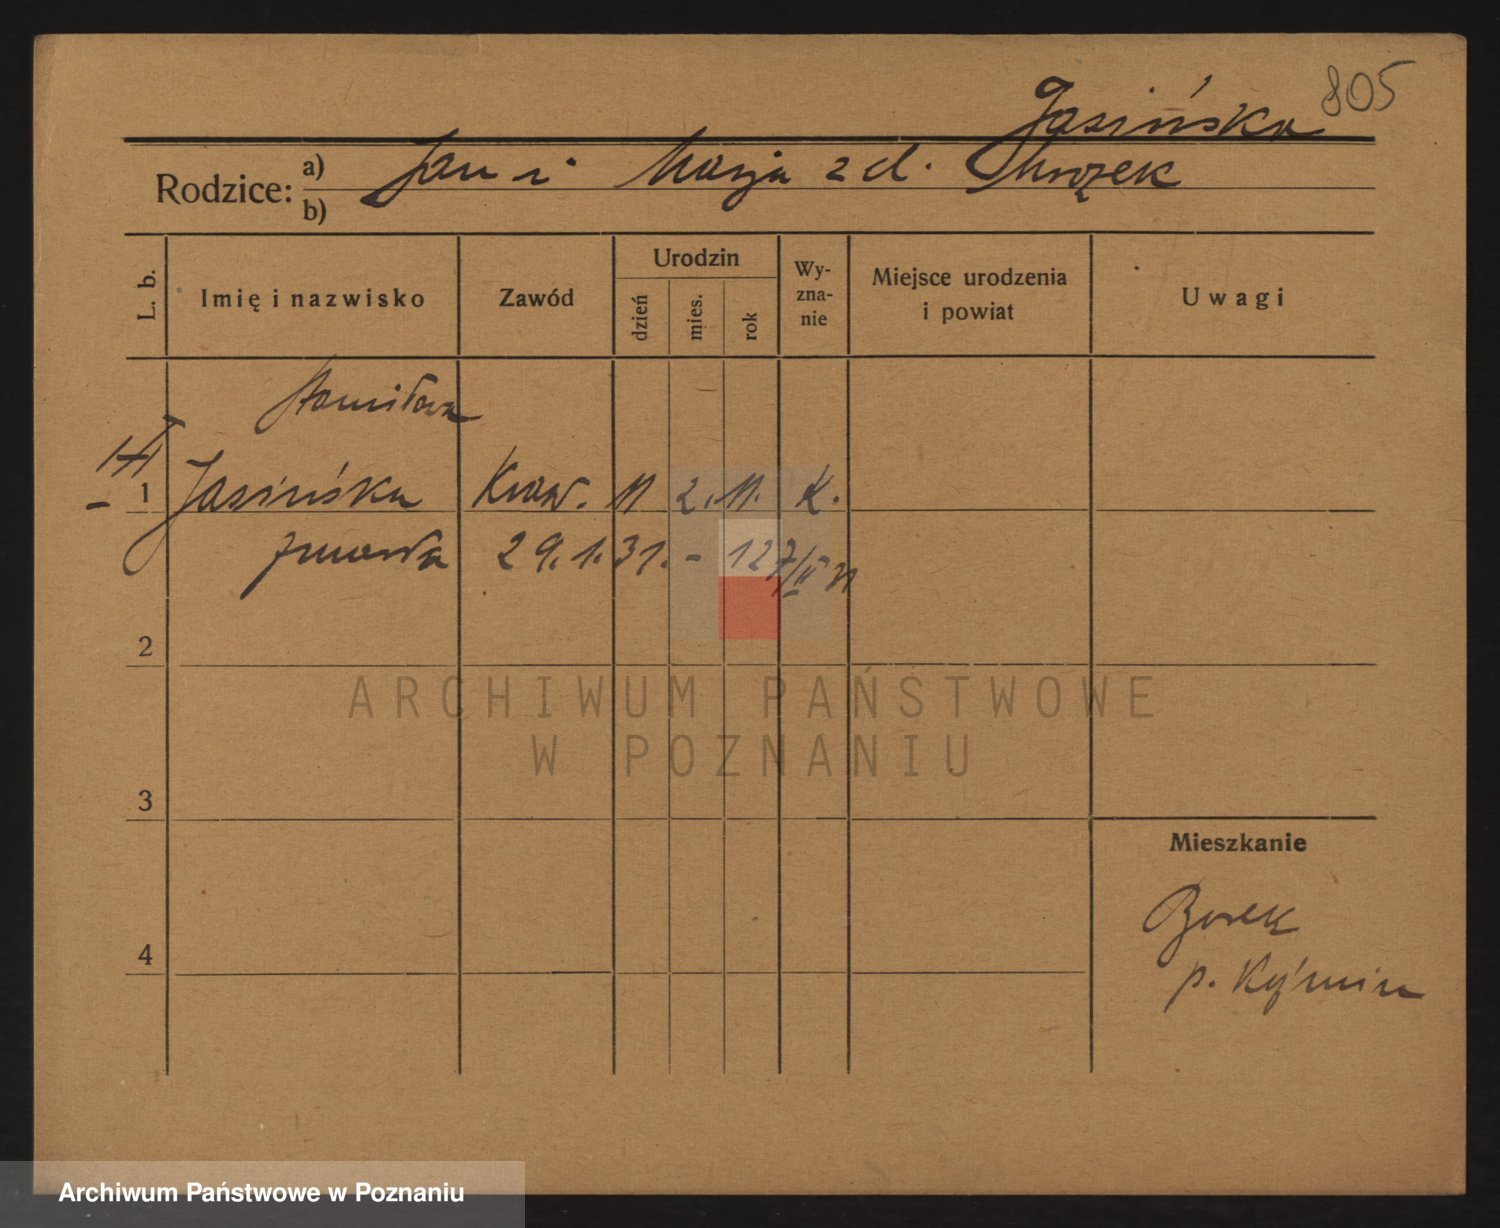 805
Jasińska
Rodzice: a) Jan i Marja z d. Mrozek
b)
L. b. Imię i nazwisko Zawód Urodzin dzień mies. rok Wy-zna-nie Miejsce urodzenia i powiat Uwagi
Stanisława
1 Jasińska Kraw. 11 2. 11. K.
zmarła 29.1.31. - 12 7/II 31
2
ARCHIWUM PAŃSTWOWE
W POZNANIU
3
Mieszkanie
Borek
4
p. Koźmin
Archiwum Państwowe w Poznaniu